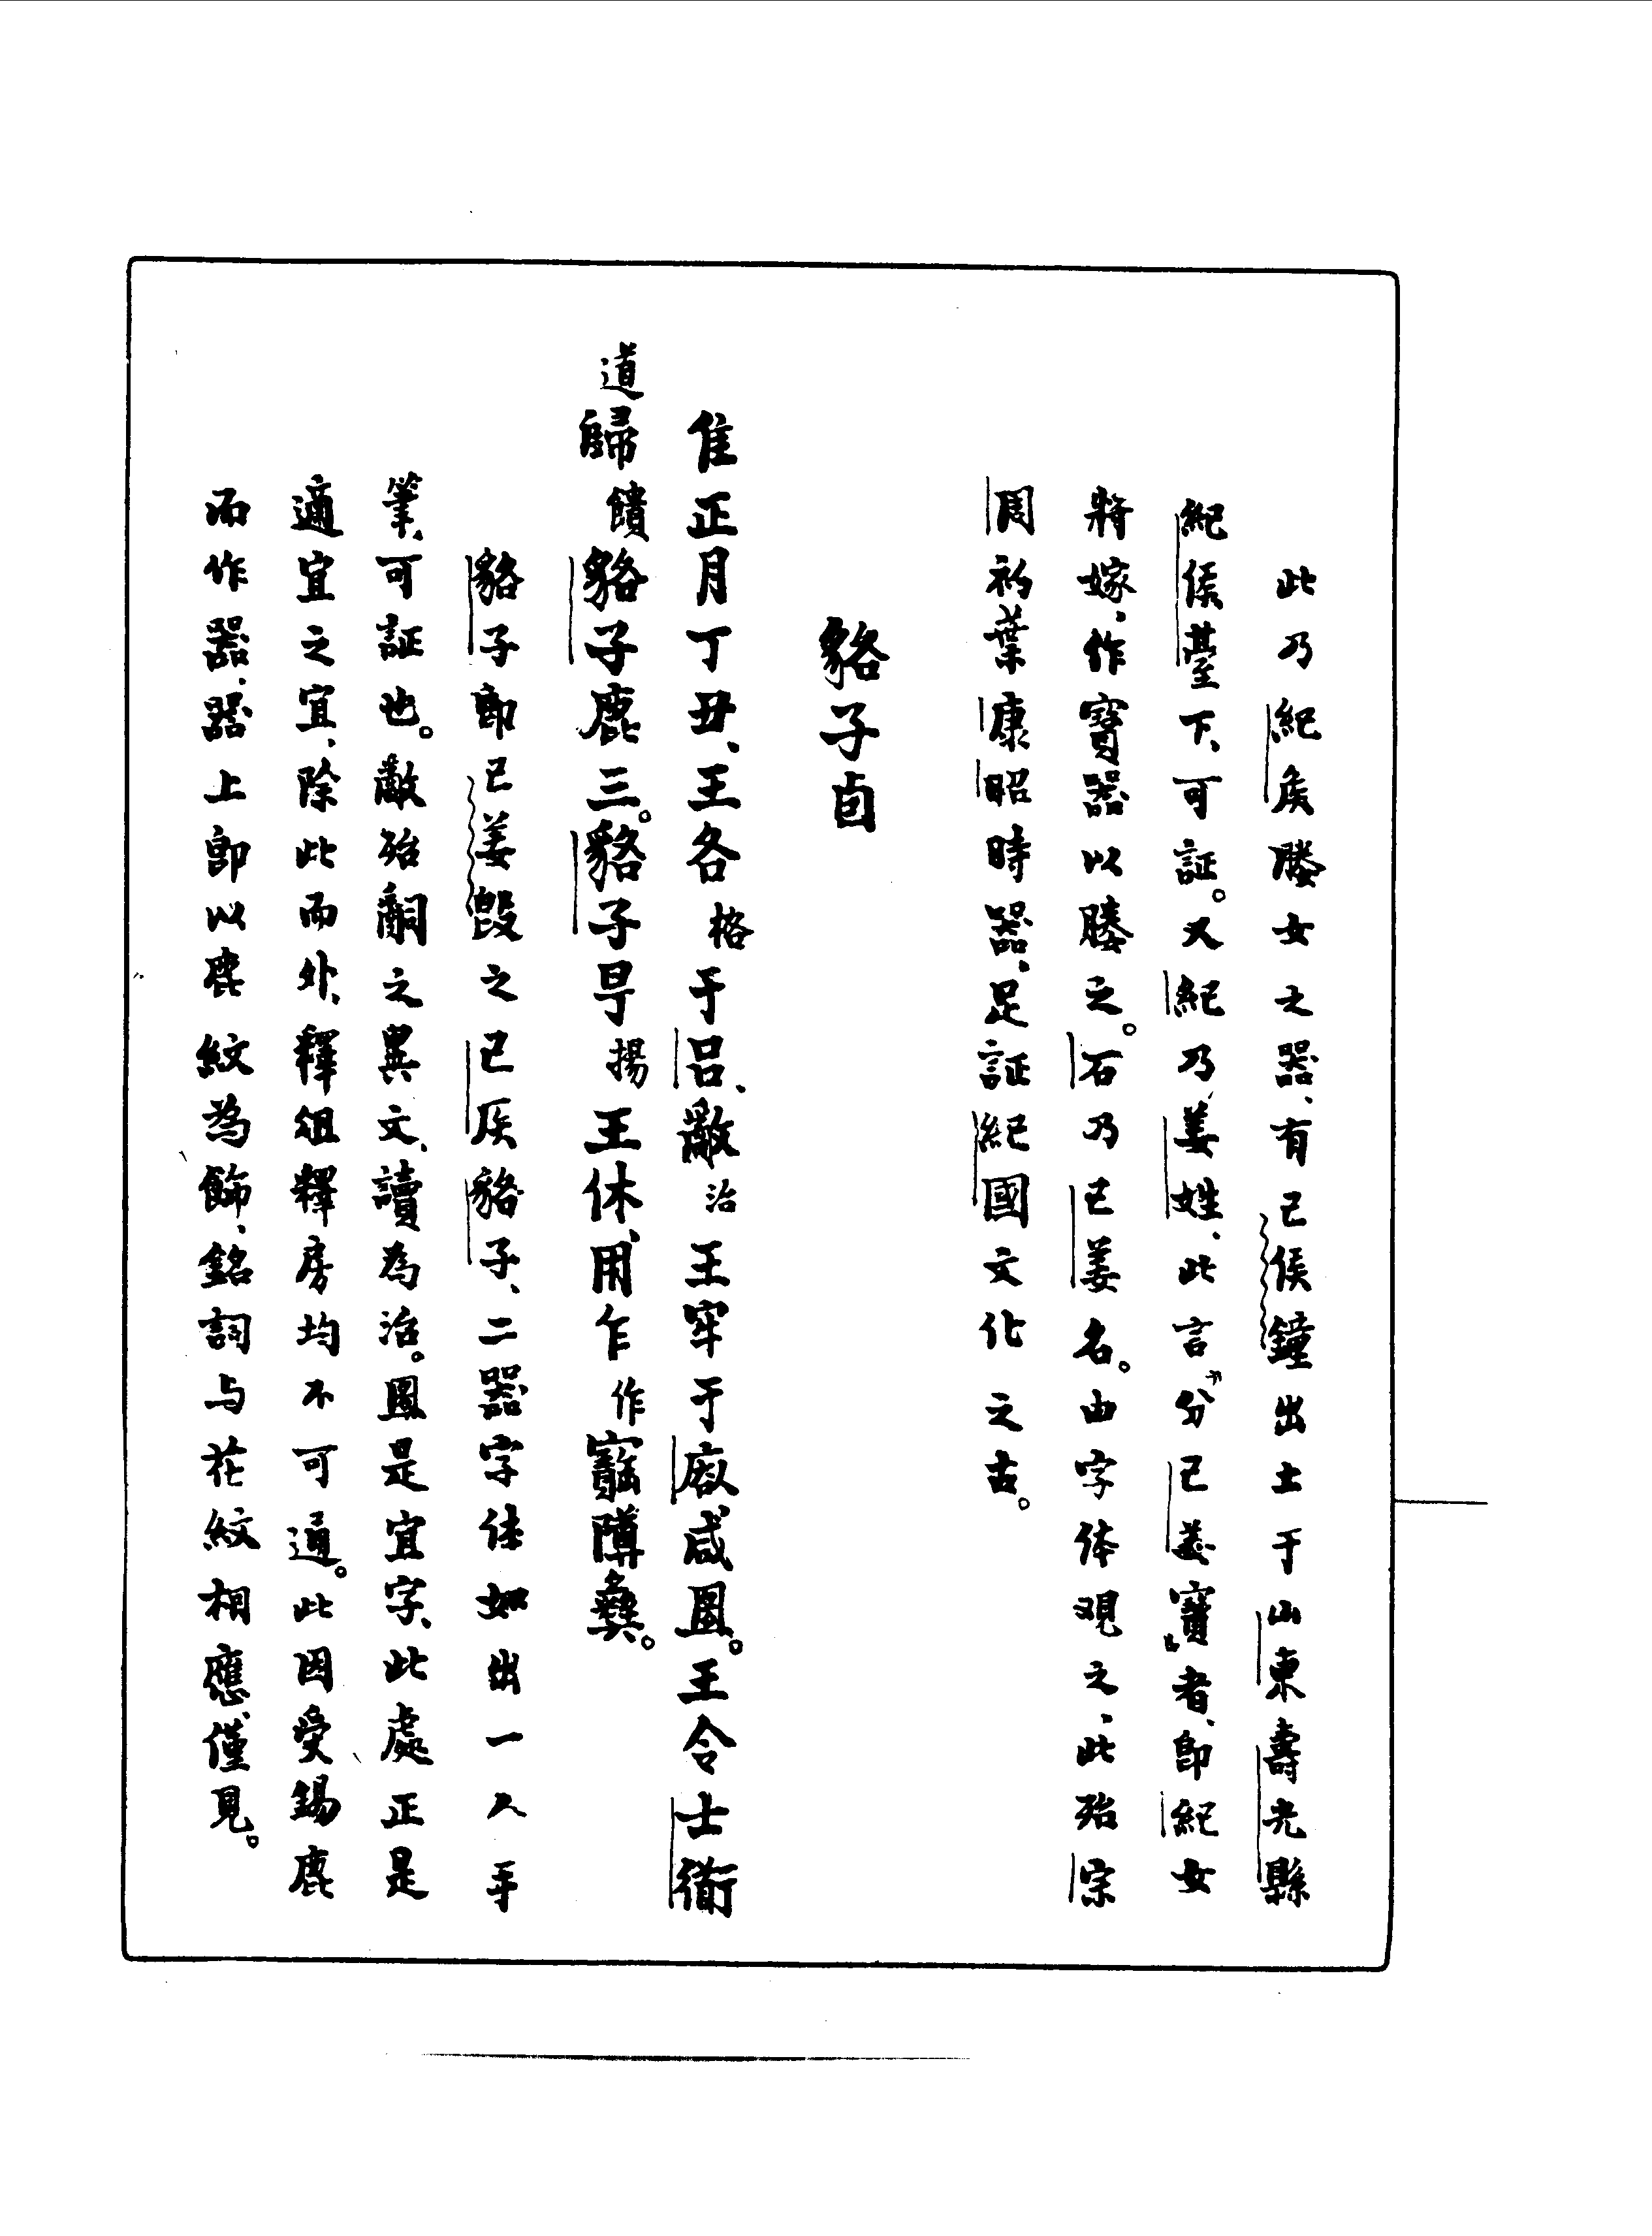 此乃紀矦媵女之器、有己侯鐘出土于山東壽光縣
紀侯臺下、可証。又紀乃姜姓、此言“分己姜寶”者、即紀女
將嫁、作寶器以媵之。石乃己姜名。由字体观之、此殆宗
周初葉康昭時器、足証紀國文化之古。
貉子卣
隹正月丁丑、王各格于呂、𢿢治王牢于𢊁、咸圂。王令士衜
道歸饋貉子鹿三。貉子𢍰揚王休、用乍作寶𨻰彝。
貉子即己姜𣪘之己矦貉子、二器字体如出一人手
筆、可証也。𢿢殆嗣之異文、讀為治。圂是宜字、此處正是
適宜之宜、除此而外、釋俎釋房均不可通。此因受錫鹿
而作器、器上即以鹿紋為飾、銘詞与花紋相應、僅見。